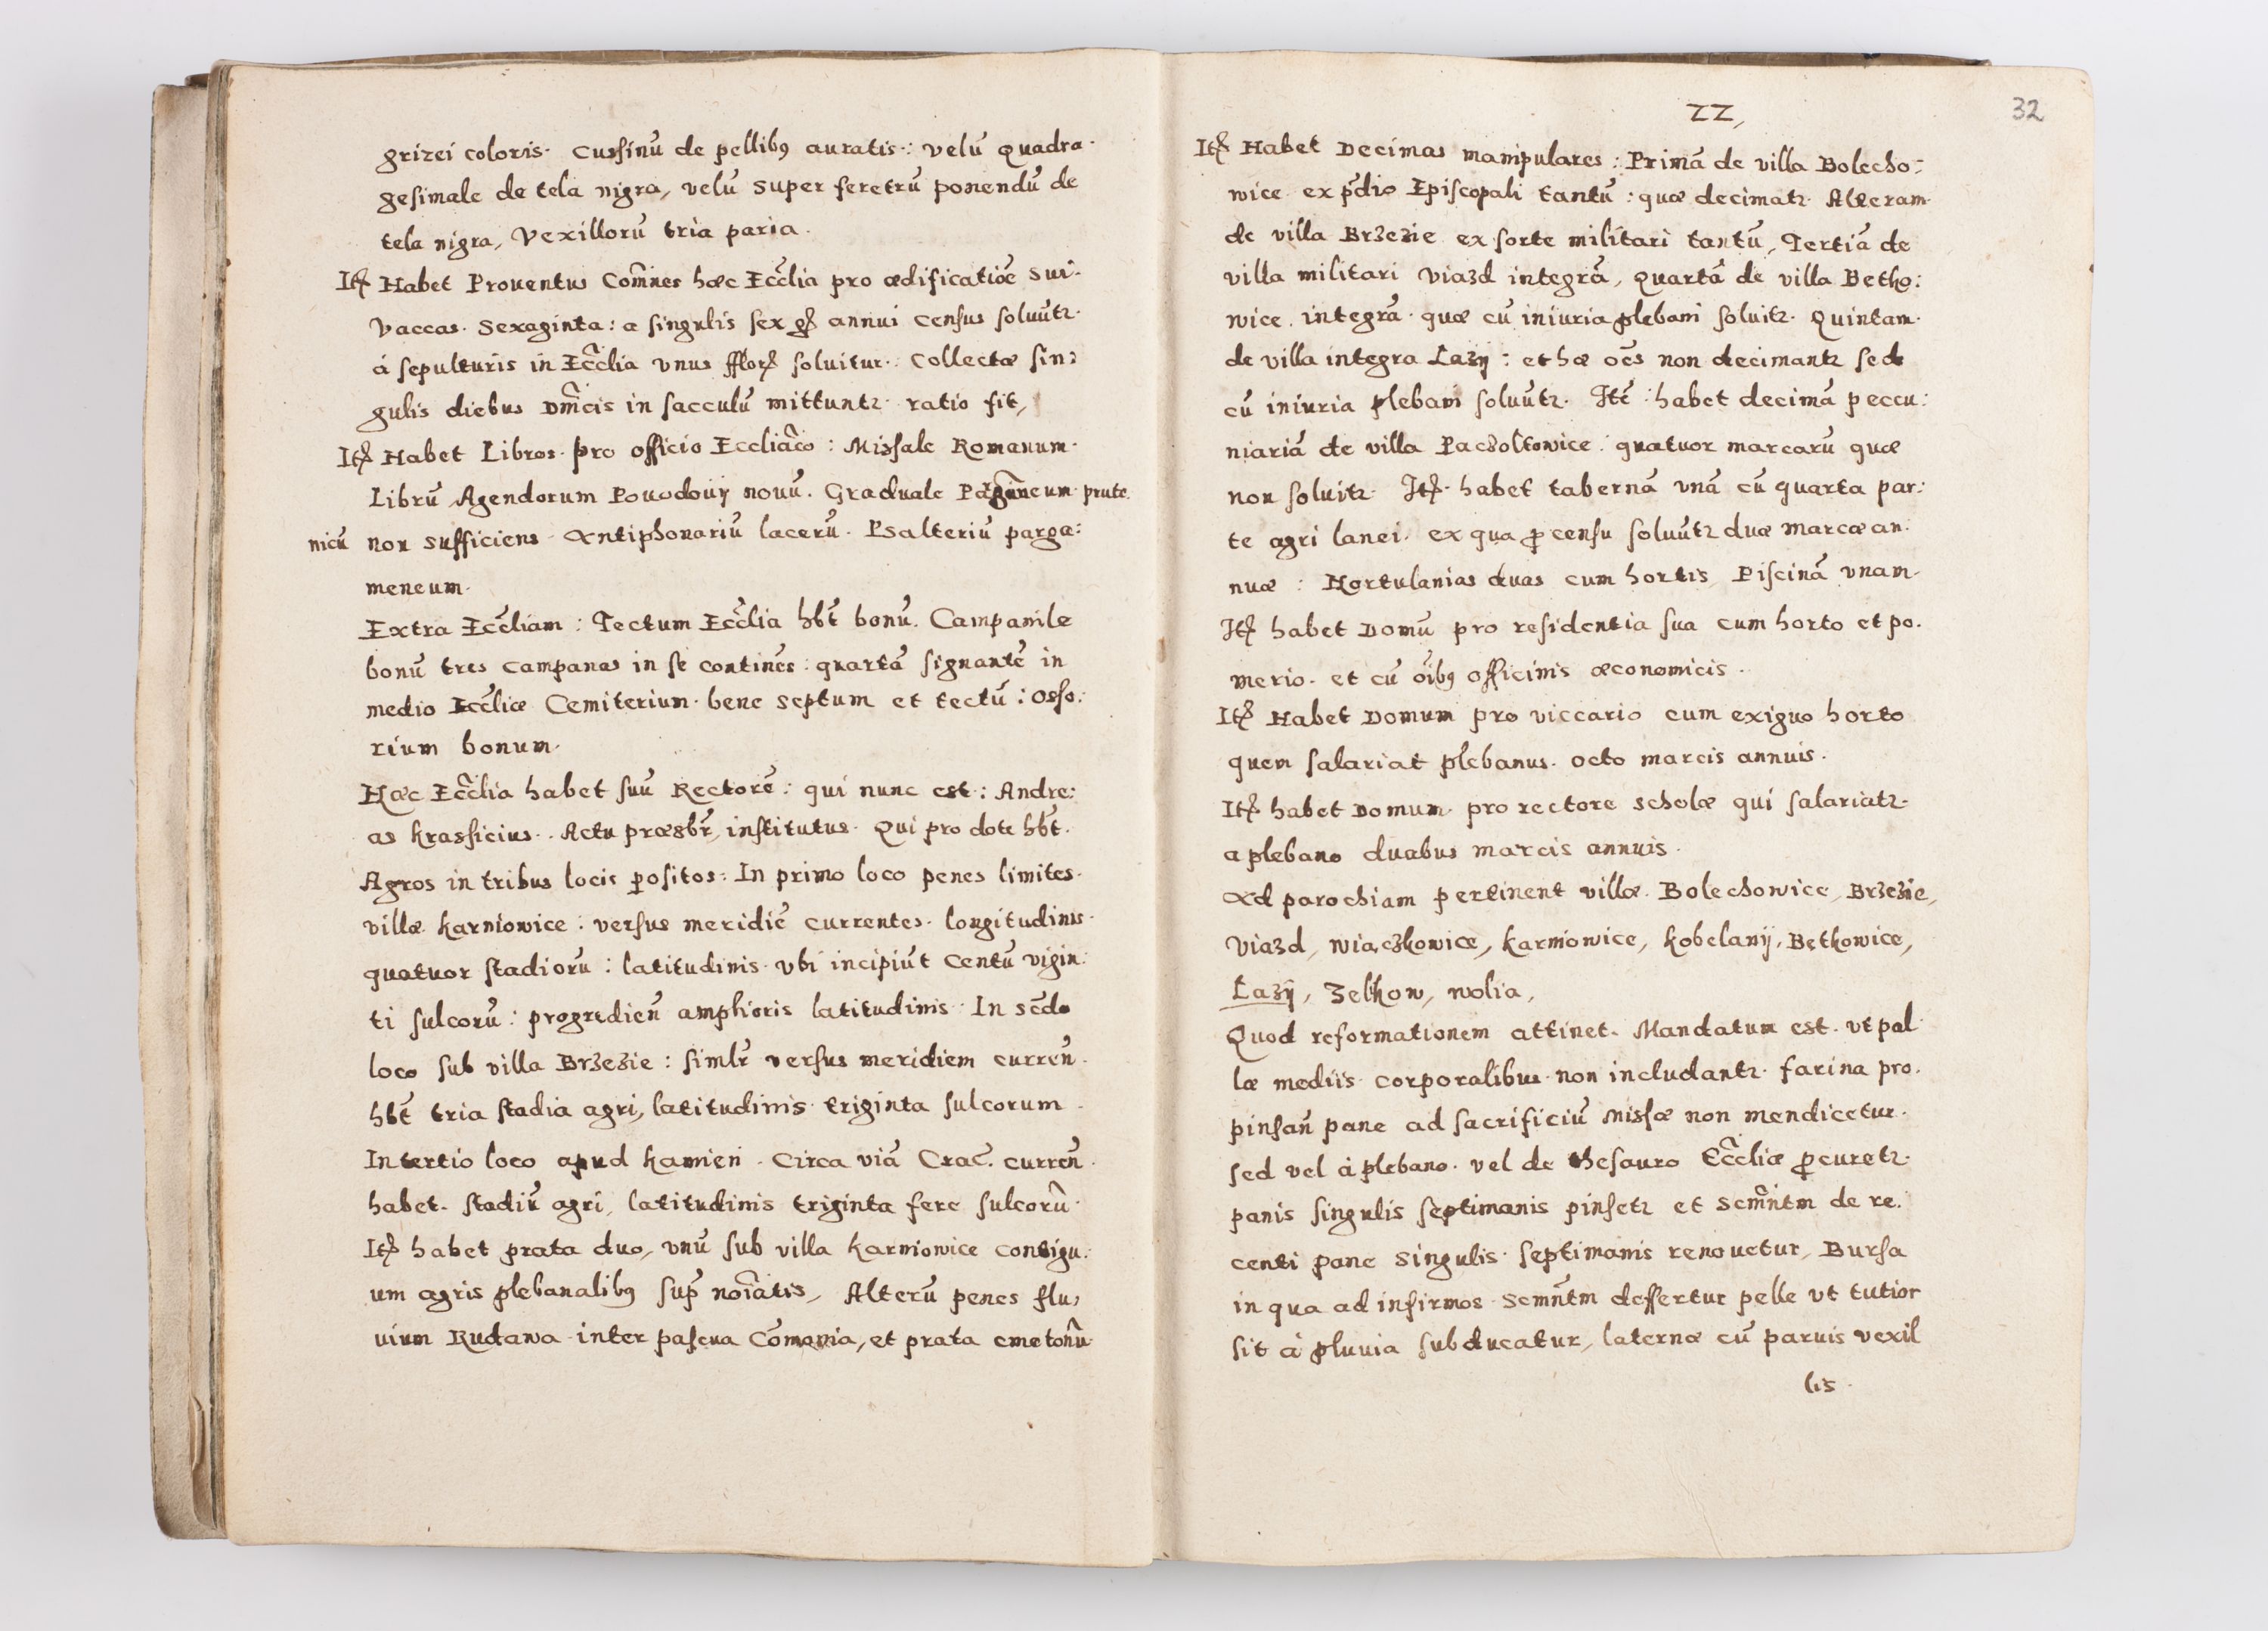 grizei coloris. Cussinū de pellibꝰ auratis: velū Quadra-
gesimale de tela nigra, velū super feretrū ponendū de
tela nigra, Vexillorū tria paria.
Itꝫ Habet Prouentus Com̄nes hæc Eccl̄ia pro ædificatiōe sui.
Vaccas. Sexaginta: a singulis sex gꝫ annui census soluūtꝛ.
á sepulturis in Eccl̄ia vnus fflorꝫ soluitur. Collectæ sin:
gulis diebus Dm̄icis in sacculū mittuntꝛ. ratio fit,
Itꝫ Habet Libros. pro officio Eccliāco: Missale Romanum.
Librū Agendorum Pouodouij nouū. Graduale prute
nicū non sufficiens Antiphonariū lacerū. Psalteriū parga:
meneum.
Extra Eccl̄iam: Tectum Eccl̄ia hb̄t bonū. Campanile
bonū tres campanas in se continēs: quartā signantē in
medio Eccl̄iæ Cemiterium. bene septum et tectū: Osso:
rium bonum.
Hæc Eccl̄ia habet suū Rectorē: qui nunc est: Andre:
as Krassicius. Actu præsbr̄, institutus. Qui pro dote hb̄t.
Agros in tribus locis positos: In primo loco penes limites.
villæ Karniowice: versus meridiē currentes. longitudinis.
quatuor stadiorū: latitudinis. vbi incipiūt Centū vigin:
ti sulcorū: progredien̄ amplioris latitudinis. In secd̄o
loco sub villa Brzezie: simlr̄ versus meridiem curren̄.
hb̄t tria stadia agri, latitudinis triginta sulcorum.
In tertio loco apud Kamien. Circa viā Crac̄. curren̄.
habet. stadiū agri, latitudinis triginta fere sulcorū.
Itꝫ habet prata duo, vnū sub villa Karniowice contigu:
um agris plebanalibꝰ sup̄ noīatis, Alterū penes flu:
uium Rudawa inter pascua Com̄onia, et prata cmetonū
ZZ,
32
Itꝫ Habet Decimas manipulares: Primā de villa Bolecho:
wice ex p̄dio Episcopali tantū: quæ decimatꝛ. Alteram
de villa Brzezie ex sorte militari tantū, Tertiā de
villa militari Viazd integrā, Quartā de villa Betko:
wice. integrā. quæ cū iniuria plebani soluitꝛ. Quintam.
de villa integra Łazij: et hæ oēs non decimantꝛ sed
cū iniuria plebani soluūtꝛ. Itē: habet decimā peccu:
niariā de villa Paczoltowice: quatuor marcarū quæ
non soluitꝛ. Itꝫ. habet tabernā vnā cū quarta par:
te agri lanei. ex qua ꝓ censu soluūtꝛ duæ marcæ an:
nuæ: Hortulanias duas cum hortis Piscinā vnam.
Itꝫ habet Domū pro residentia sua cum horto et po.
merio. et cū oībꝰ officinis œconomicis.
Itꝫ Habet Domum pro viccario cum exiguo horto
quem salariat plebanus. octo marcis annuis.
Itꝫ habet Domum. pro rectore scholæ qui salariatꝛ.
a plebano duabus marcis annuis.
Ad parochiam pertinent villæ. Bolechowice, Brzezie,
Viazd, Wiączkowice, Karniowice, Kobelanij, Bętkowice,
Łazij, Zelkow, Wolia,
Quod reformationem attinet. Mandatum est. vt pal
læ mediis corporalibus non includantꝛ. farina pro.
pinsan̄ pane ad sacrificiū Missæ non mendicetur.
sed vel à plebano. vel de thesauro Eccl̄iæ ꝓcuretꝛ.
panis singulis septimanis pinsetꝛ et Scm̄ntm de re.
centi pane singulis septimanis renouetur, Bursa
in qua ad infirmos Scmn̄tm deffertur pelle vt tutior
sit à pluuia subducatur, laternæ cū paruis vexil
lis.